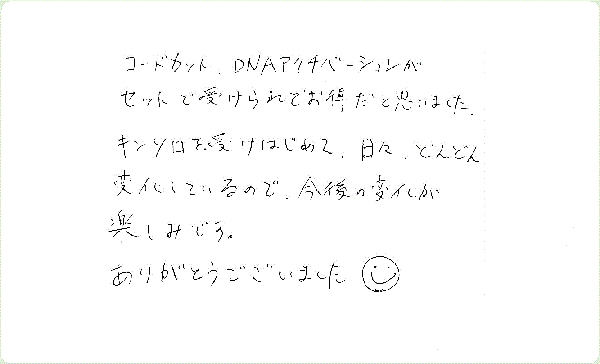 コードカット、DNAアクチバーションが
セットで受けられてお得だと思いました。
キンソロを受けはじめて、日々、どんどん
変化しているので、今後の変化が
楽しみです。
ありがとうございました